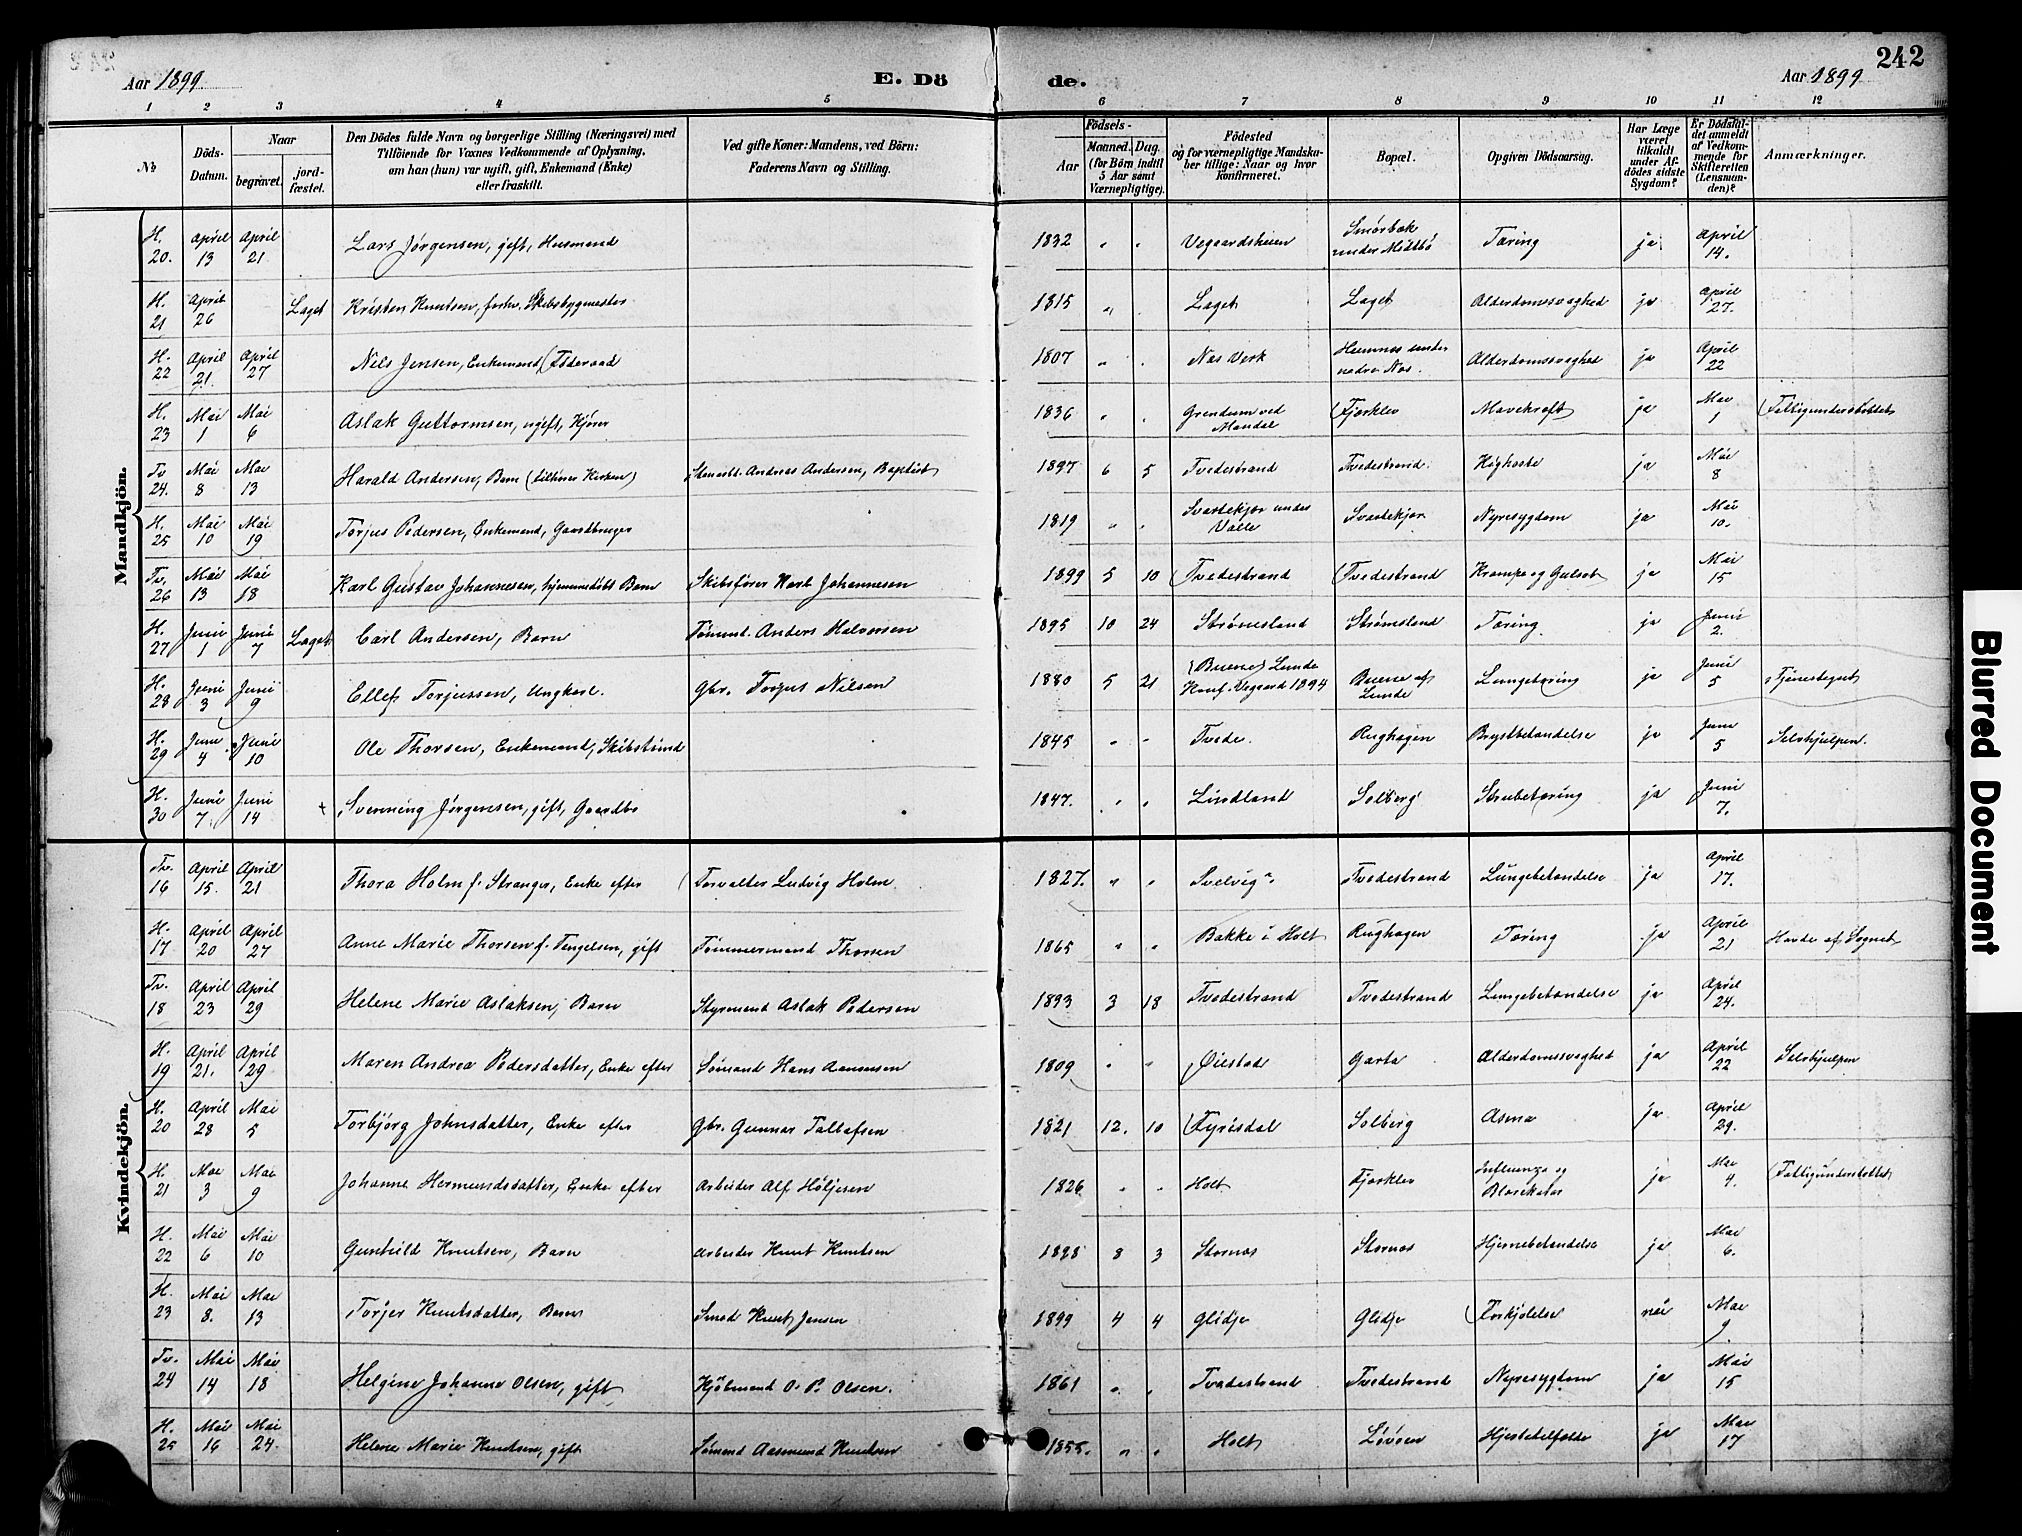 242
Aar 1899
E. Dö
de.
Aar 1899
1 2 3 4 5 6 7 8 9 10 11 12
No
Döds-Datum.
Naar
begravet.
jord-fæstet.
Den Dödes fulde Navn og borgerlige Stilling (Næringsvei) med
Tilföiende for Voxnes Vedkommende af Oplysning,
om han (hun) var ugift, gift, Enkemand (Enke)
eller fraskilt.
Ved gifte Koner: Mandens, ved Börn:
Faderens Navn og Stilling.
Födsels-
Aar
Maaned. Dag.
(for Börn indtil
5 Aar samt
Værnepligtige).
Födested
og for værnepligtige Mandska-
ber tillige: Naar og hvor
konfirmeret.
Bopæl.
Opgiven Dödsaarsag.
Har Læge
været
tilkaldt
under Af-
dödes sidste
Sygdom?
Er Dödsfal-
det anmeldt
af Vedkom-
mende for
Skifteretten
(Lensman-
den)?
Anmærkninger.
Mandkjön.
H. 20. April 13 April 21 Lars Jørgensen, gift, Husmand 1832 " " Vegaardsheien Smörbæk under Midtbö Tæring ja April 14.
H. 21 April 26 Laget Kristen Knutsen, forhv. Skibsbygmester 1815 " Laget Laget Alderdomssvaghed ja April 27.
H. 22 April 21. April 27 Nils Jensen, Enkemand, Föderaad 1807 " " Næs Verk under nedre Næs. Alderdomssvaghed ja April 22
H. 23 Mai 1 Mai 6 Aslak Guttormsen, ugift, 1836 " " Grendum ved Mandal Fjærklev Mavekræft ja Mai 1 Fattigunderstöttet
Tv. 24. Mai 8 Mai 13 Harald Andersen, Barn (tilhører Kirken) Andreas Andersen, Baptist 1897 6 5 Tvedestrand Tvedestrand. Kighoste ja Mai 8
H. 25 Mai 10 Mai 19 Torjus Pedersen, Enkemand, Gaardbruger 1819 " " Svartekjær under Valle Svartekjær Nyresygdom ja Mai 10.
Tv. 26 Mai 13 Mai 18 Karl Gustav Johannesen, hjemmedöbt Barn Skibsfører Karl Johannesen 1899 5 10 Tvedestrand Tvedestrand Krampe og Gulsot ja Mai 15
H. 27 Juni 1 Juni 7 Laget Carl Andersen, Barn Tømmd. Anders Halvorsen 1895 10 24 Strømsland Strømsland Tæring ja Juni 2.
H. 28 Juni 3 Juni 9 Ellef Torjussen, Ungkarl. Gbr. Torjus Nilsen 1880 5 21 Buene Lunde Konf. Vegaard 1894 Buene af Lunde Lungetæring ja Juni 5 Tjenestegut
H. 29 Juni 4 Juni 10 Ole Thorsen, Enkemand, Skibstømd 1845 " " Tvede. Rughagen Brystbetændelse ja Juni 5 Selvhjulpen.
H. 30 Juni 7 Juni 14 + Svenning Jørgensen, gift, Gaardbr 1847. " " Lindland Solberg Strubetæring ja Juni 7.
Kvindekjön.
Tv. 16 April 15. April 21 Thora Holm f. Stranger, Enke efter Forvalter Ludvig Holm 1827. " " Svelvig Tvedestrand Lungebetændelse ja April 17.
H. 17 April 20 April 27 Anne Marie Thorsen f. Tengelsen, gift Tömmermand Thorsen 1865 " " Bakke i Holt Rughagen Tæring ja April 21 Havde af Sognet
Tv. 18 April 23 April 29 Helene Marie Aslaksen, Barn Styrmand Aslak Pedersen 1893 3 18 Tvedestrand Tvedestrand Lungebetændelse ja April 24.
H. 19 April 21. April 29 Maren Andrea Pedersdatter, Enke efter Sømand Hans Aanonsen 1809 " " Øiestad Garta Alderdomssvaghed ja April 22 Selvhjulpen
H. 20 April 28 Mai 5 Torbjörg Johnsdatter, Enke efter Gbr. Gunnar Tallafsen 1821 12. 10 Fyrisdal Solberg Asma ja April 29.
H. 21 Mai 3 Mai 9 Johanne Hermundsdatter, Enke efter Arbeider Alf Höljesen 1826 " " Holt Fjærklev Influenza og Blærekatar ja Mai 4. Fattigunderstöttet
H. 22 Mai 6 Mai 10 Gunhild Knutsen, Barn Arbeider Knut Knutsen 1898 8 3 Stornæs Stornæs Hjernebetændelse ja Mai 6.
H. 23 Mai 8. Mai 13 Torjer Knutsdatter, Barn Smed Knut Jensen 1899 4 4 Glidje Glidje Forkjölelse nei Mai 9
Tv. 24 Mai 14 Mai 18 Helgine Johanne Olsen, gift Kjölmand O. P. Olsen. 1861 " " Tvedestrand Tvedestrand Nyresygdom ja Mai 15
H. 25 Mai 16 Mai 24. Helene Marie Knutsen, gift Sømand Aasmund Knutsen 1855. " " Holt Løvøen Hjertefeil ja Mai 17
Blurred Document